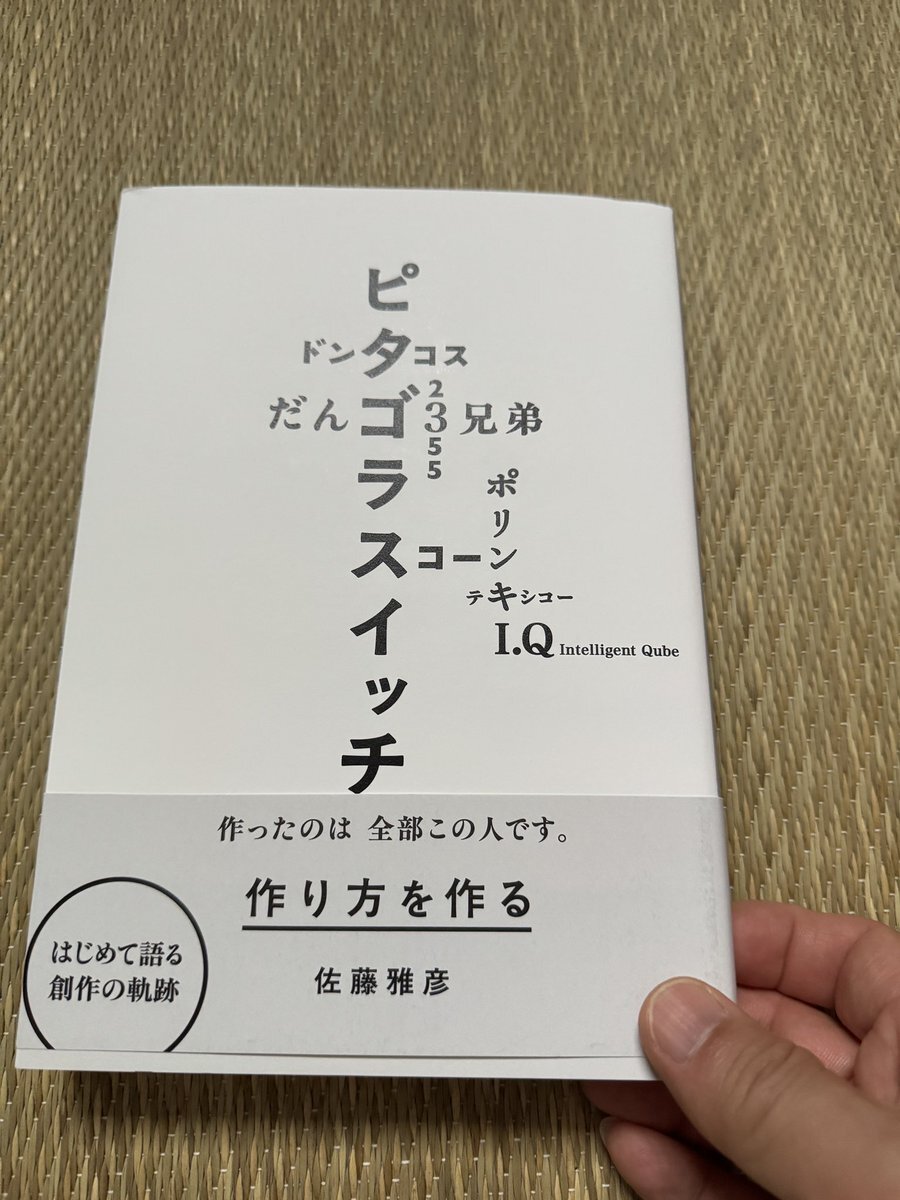 ピタゴラスイッチ
ドンタコス
だんゴ3兄弟
2355
ポリンキー
スコーン
テキシコー
I.Q Intelligent Qube
作ったのは 全部この人です。
作り方を作る
佐藤雅彦
はじめて語る
創作の軌跡